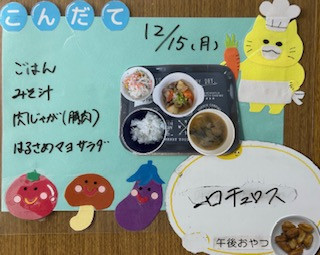 こんだて
12/15(月)
ごはん
みそ汁
肉じゃが(豚肉)
はるさめマヨサラダ
チュロス
午後おやつ